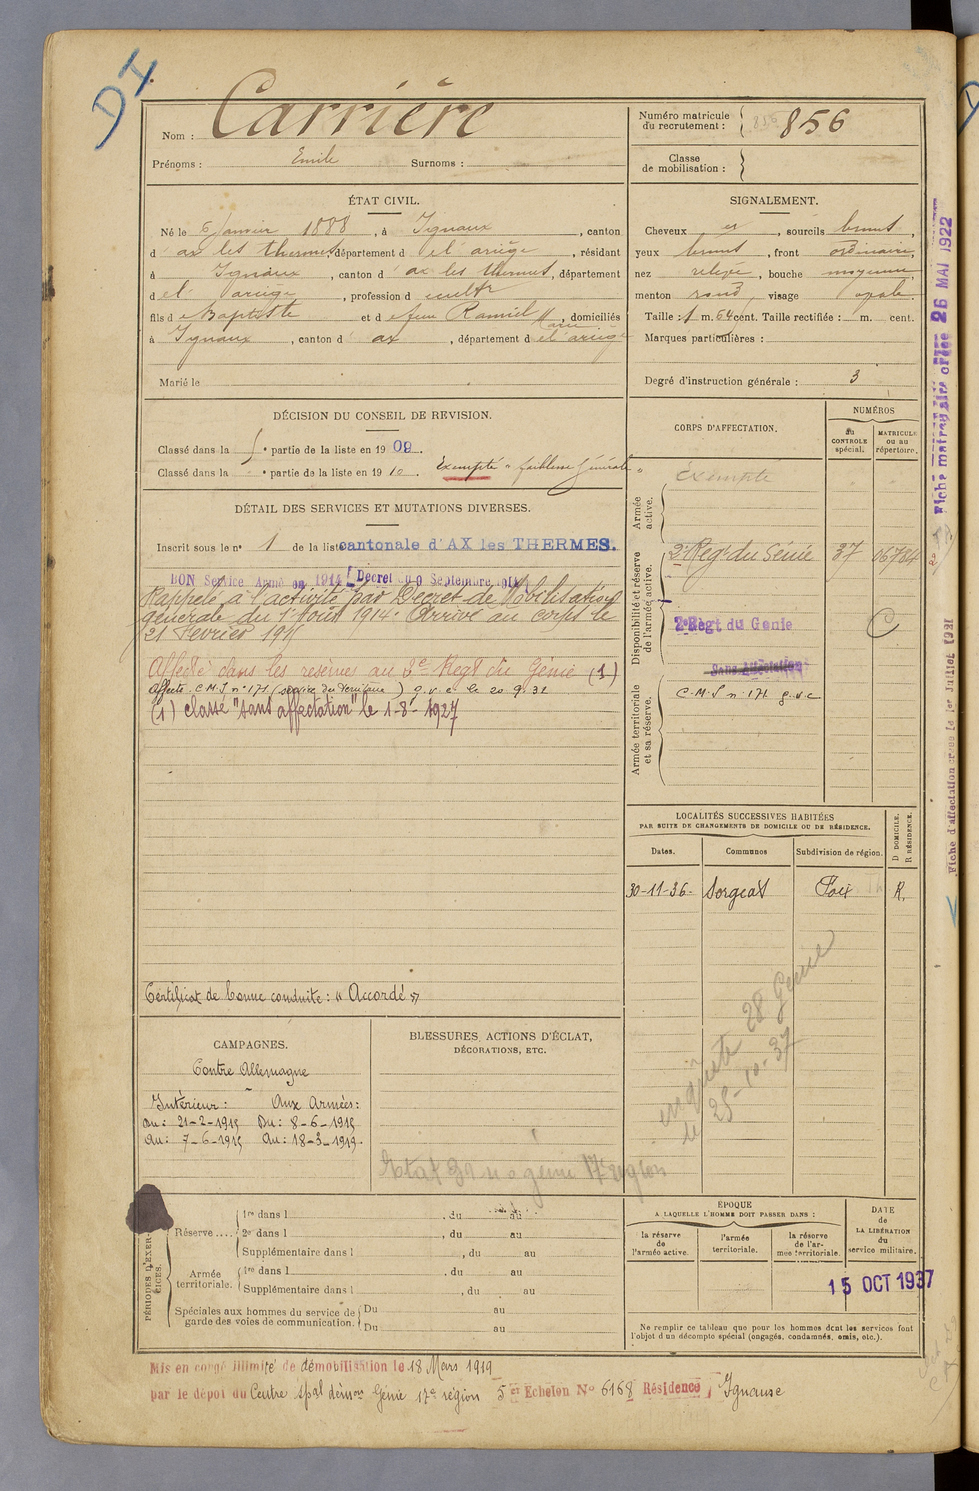 DI
Nom : Carrière
Prénoms : Emile Surnoms :
Numéro matricule du recrutement : 856
Classe de mobilisation :
ÉTAT CIVIL.
Né le 6 Janvier 1888, à Ignaux, canton
d'ax les thermes, département de l'ariège, résidant
à Ignaux, canton d'ax les thermes, département
de l'ariège, profession de cultr
fils de Baptiste et de feue Ramiel Marie, domiciliés
à Ignaux, canton d'ax, département de l'ariège
Marié le
SIGNALEMENT.
Cheveux et, sourcils bruns,
yeux bruns, front ordinaire,
nez relevé, bouche moyenne,
menton rond, visage ovale.
Taille : 1 m. 64 cent. Taille rectifiée : m. cent.
Marques particulières :
Degré d'instruction générale : 3
DÉCISION DU CONSEIL DE REVISION.
Classé dans la partie de la liste en 1909.
Classé dans la partie de la liste en 1910. Exempté "faiblesse Générale"
DÉTAIL DES SERVICES ET MUTATIONS DIVERSES.
Inscrit sous le n° 1 de la liste cantonale d'AX les THERMES.
BON Service Armé en 1914 (Décret du 9 Septembre 1914)
Rappelé à l'activité par Décret de Mobilisation
générale du 1er Août 1914. Arrivé au corps le
21 Février 191
Affecté dans les réserves au 2e Régt du Génie (1)
Affecté C.M.I n° 171 (service du territoire) g.v.c. le 20.9.32
(1) classé "sans affectation" le 1-8-1927
Certificat de bonne conduite : "Accordé"
CORPS D'AFFECTATION.
NUMÉROS
au CONTROLE spécial.
MATRICULE ou au répertoire.
Armée active.
Exempté
Disponibilité et réserve de l'armée active.
2e Régt du Génie 37 06784
2e Régt du Génie C
Sans Affectation
Armée territoriale et sa réserve.
C.M.I n° 171 g.v.c
LOCALITÉS SUCCESSIVES HABITÉES
PAR SUITE DE CHANGEMENTS DE DOMICILE OU DE RÉSIDENCE.
Dates. Communes Subdivision de région. D DOMICILE. R RÉSIDENCE.
30-11-36- Sorgeat Foix R.
enquête 28 Génie
le 25-10-37
CAMPAGNES.
Contre Allemagne
Intérieur : Aux Armées :
Du : 21-2-1915 Du : 8-6-1915
Au : 7-6-1915 Au : 18-3-1919.
BLESSURES, ACTIONS D'ÉCLAT,
DÉCORATIONS, ETC.
PÉRIODES D'EXERCICES.
Réserve .... 1re dans l , du au
2e dans l , du au
Supplémentaire dans l , du au
Armée territoriale. 1re dans l , du au
Supplémentaire dans l , du au
Spéciales aux hommes du service de garde des voies de communication. Du au
Du au
ÉPOQUE
A LAQUELLE L'HOMME DOIT PASSER DANS :
la réserve de l'armée active.
l'armée territoriale.
la réserve de l'armée territoriale.
DATE de LA LIBÉRATION du service militaire.
15 OCT 1937
Ne remplir ce tableau que pour les hommes dont les services font
l'objet d'un décompte spécial (engagés, condamnés, omis, etc.).
Mis en congé illimité de démobilisation le 18 Mars 1919
par le dépôt du Centre spal démon Génie 17e région 5 Echelon N° 6168 Résidence, Ignause
Fiche matriculaire créée 26 MAI 1922
Fiche d'affectation créée le 1er Juillet 1931